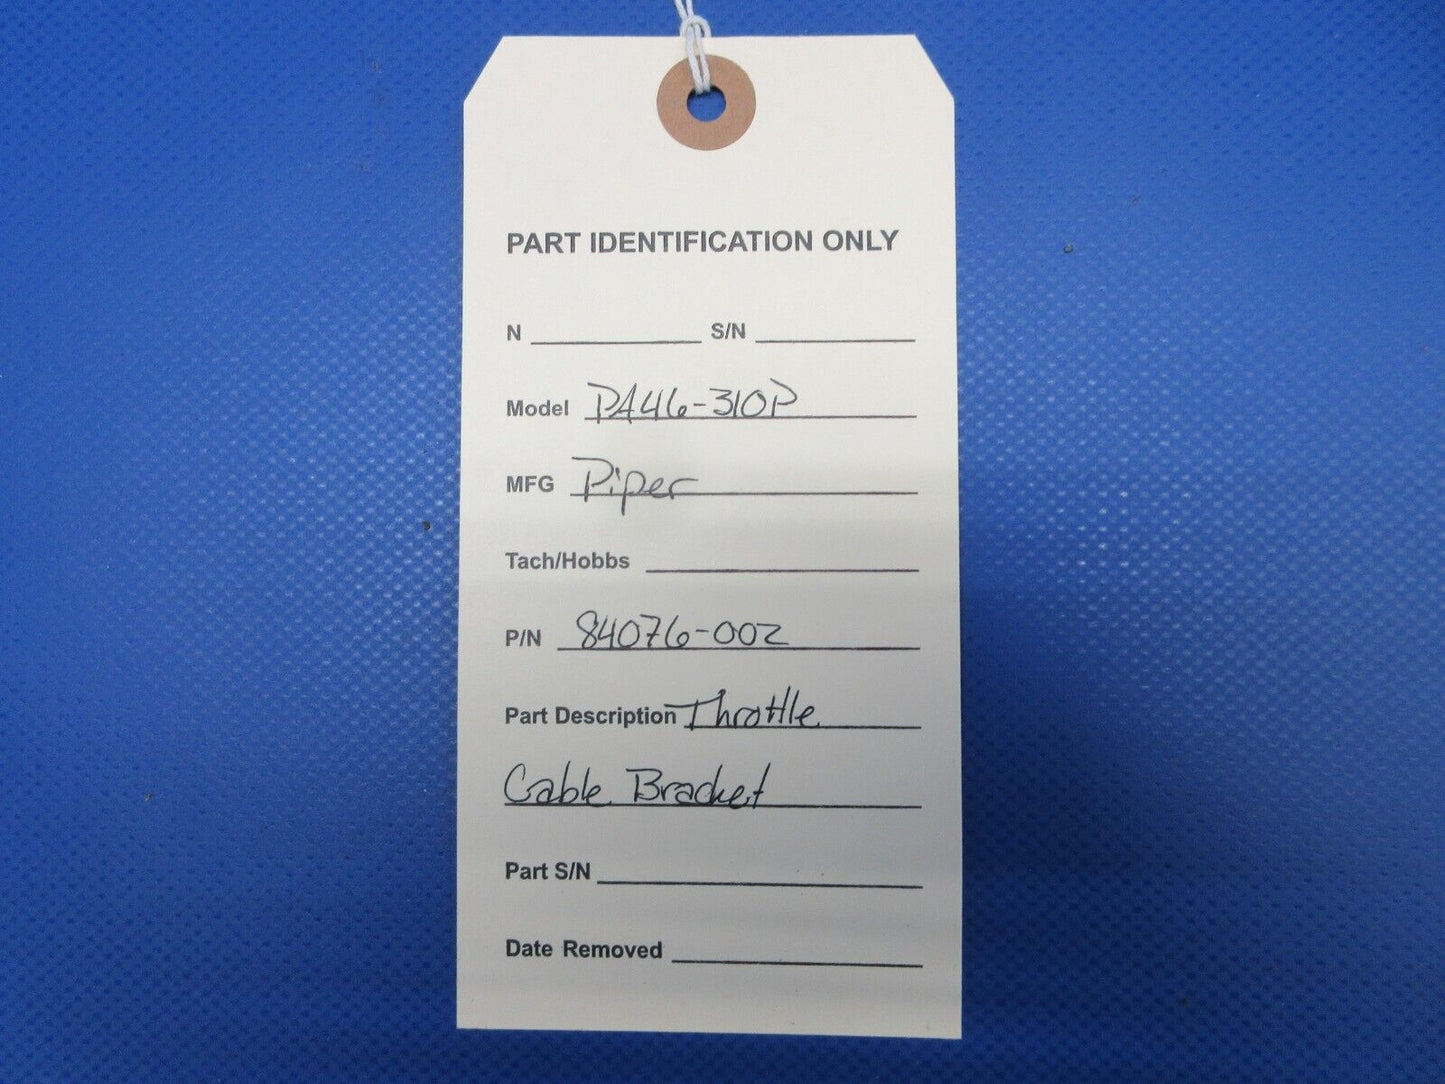 PART IDENTIFICATION ONLY
N S/N
Model PA46-310P
MFG Piper
Tach/Hobbs
P/N 84076-002
Part Description Throttle
Cable Bracket
Part S/N
Date Removed